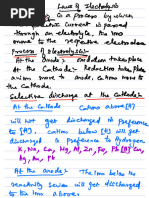 Laws of Electrolysis
is a process by which
electric current is passed
through an electrolyte, the ions
move to the respective electrodes
Process of Electrolysis:
At the Anode: Oxidation takes place
At the Cathode: Reduction takes place
anions move to anode, cations move to
cathode.
Selective discharge at the Cathode:
At the Cathode: Cations above [H]
will not get discharged in preference
to [H]. cations below [H] will get
discharged in preference to Hydrogen
K, Na, Ca, Mg, Al, Zn, Fe, Pb [H] Cu,
Ag, Au, Pb
At the anode: The ions below the
reactivity series will get discharged
to the ions above.